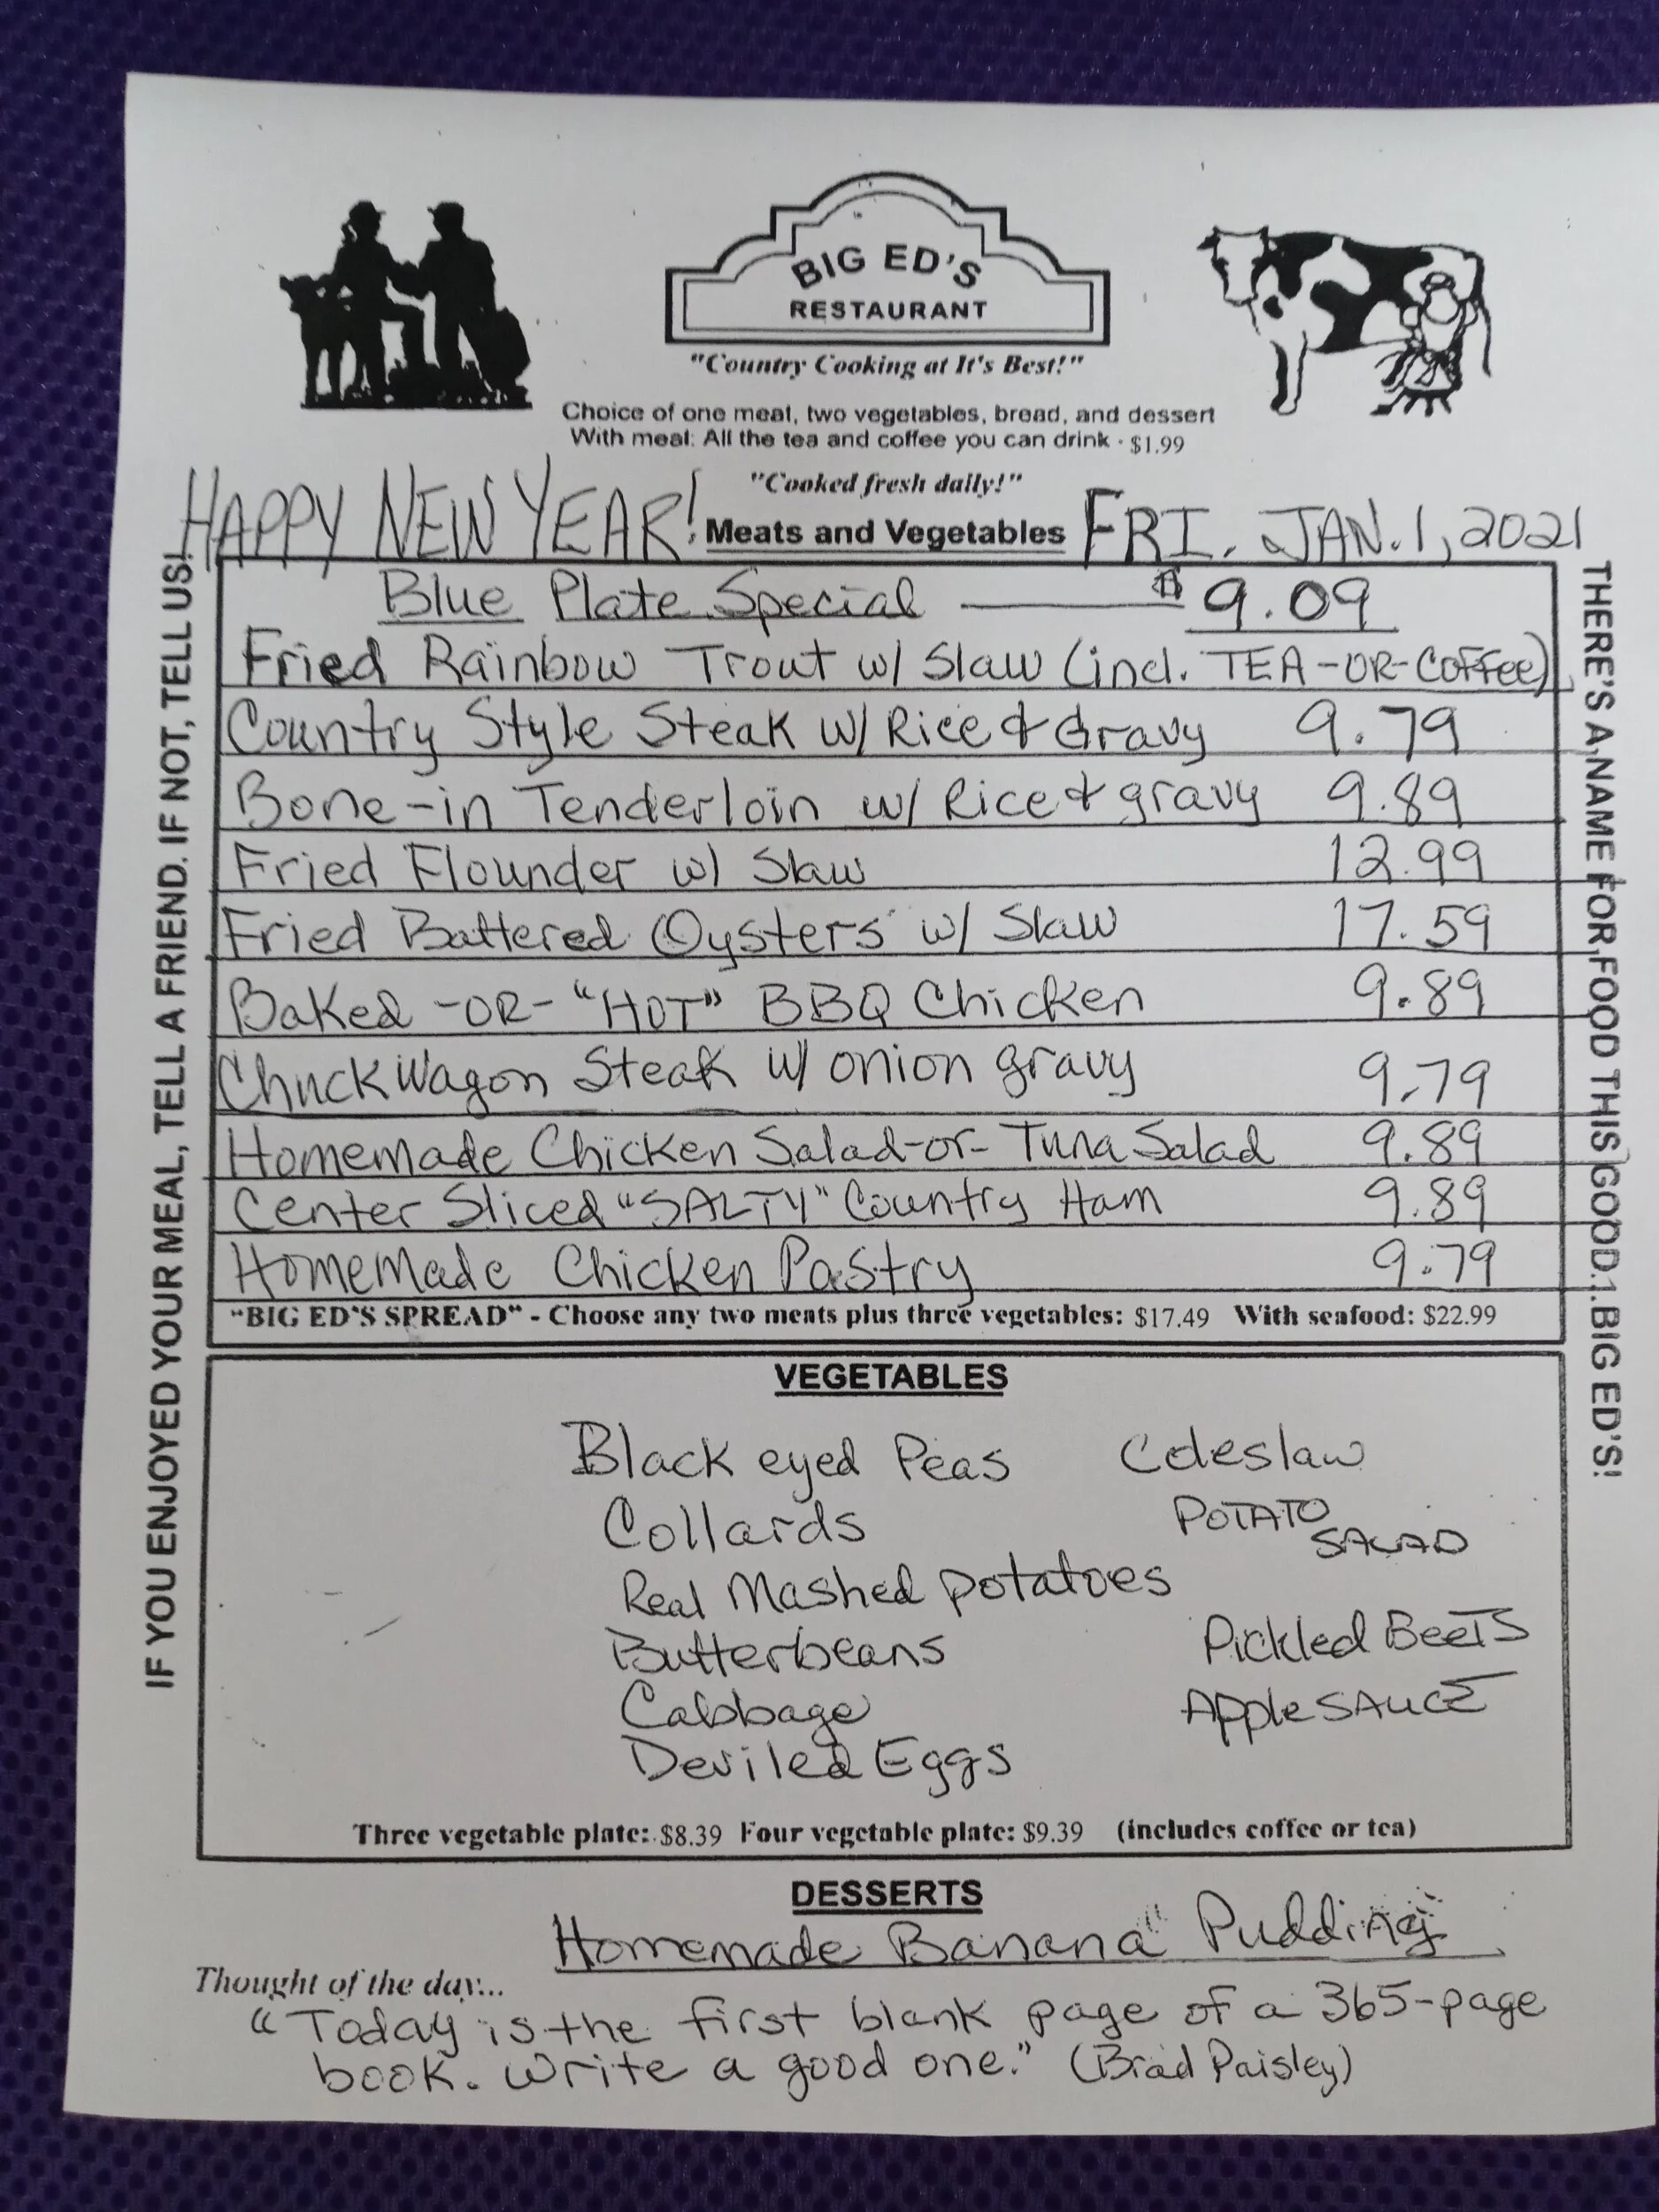 BIG ED'S
RESTAURANT
"Country Cooking at It's Best!"
Choice of one meat, two vegetables, bread, and dessert
With meal: All the tea and coffee you can drink - $1.99
"Cooked fresh daily!"
HAPPY NEW YEAR! Meats and Vegetables FRI. JAN. 1, 2021
Blue Plate Special — $9.09
Fried Rainbow Trout w/ Slaw (incl. TEA-OR-COFFee)
Country Style Steak w/ Rice & Gravy 9.79
Bone-in Tenderloin w/ Rice & gravy 9.89
Fried Flounder w/ Slaw 12.99
Fried Battered Oysters w/ Slaw 17.59
Baked -OR- "HOT" BBQ Chicken 9.89
Chuck Wagon Steak w/ onion gravy 9.79
Homemade Chicken Salad-or- Tuna Salad 9.89
Center Sliced "SALTY" Country Ham 9.89
HomeMade Chicken Pastry 9.79
"BIG ED'S SPREAD" - Choose any two meats plus three vegetables: $17.49 With seafood: $22.99
VEGETABLES
Black eyed Peas Coleslaw
Collards POTATO
SALAD
Real Mashed potatoes
Butterbeans Pickled BeeTS
Cabbage AppleSAUCE
Deviled Eggs
Three vegetable plate: $8.39 Four vegetable plate: $9.39 (includes coffee or tea)
DESSERTS
Homemade Banana Pudding
Thought of the day...
"Today is the first blank page of a 365-page
book. Write a good one." (Brad Paisley)
IF YOU ENJOYED YOUR MEAL, TELL A FRIEND. IF NOT, TELL US!
THERE'S A NAME FOR FOOD THIS GOOD...BIG ED'S!